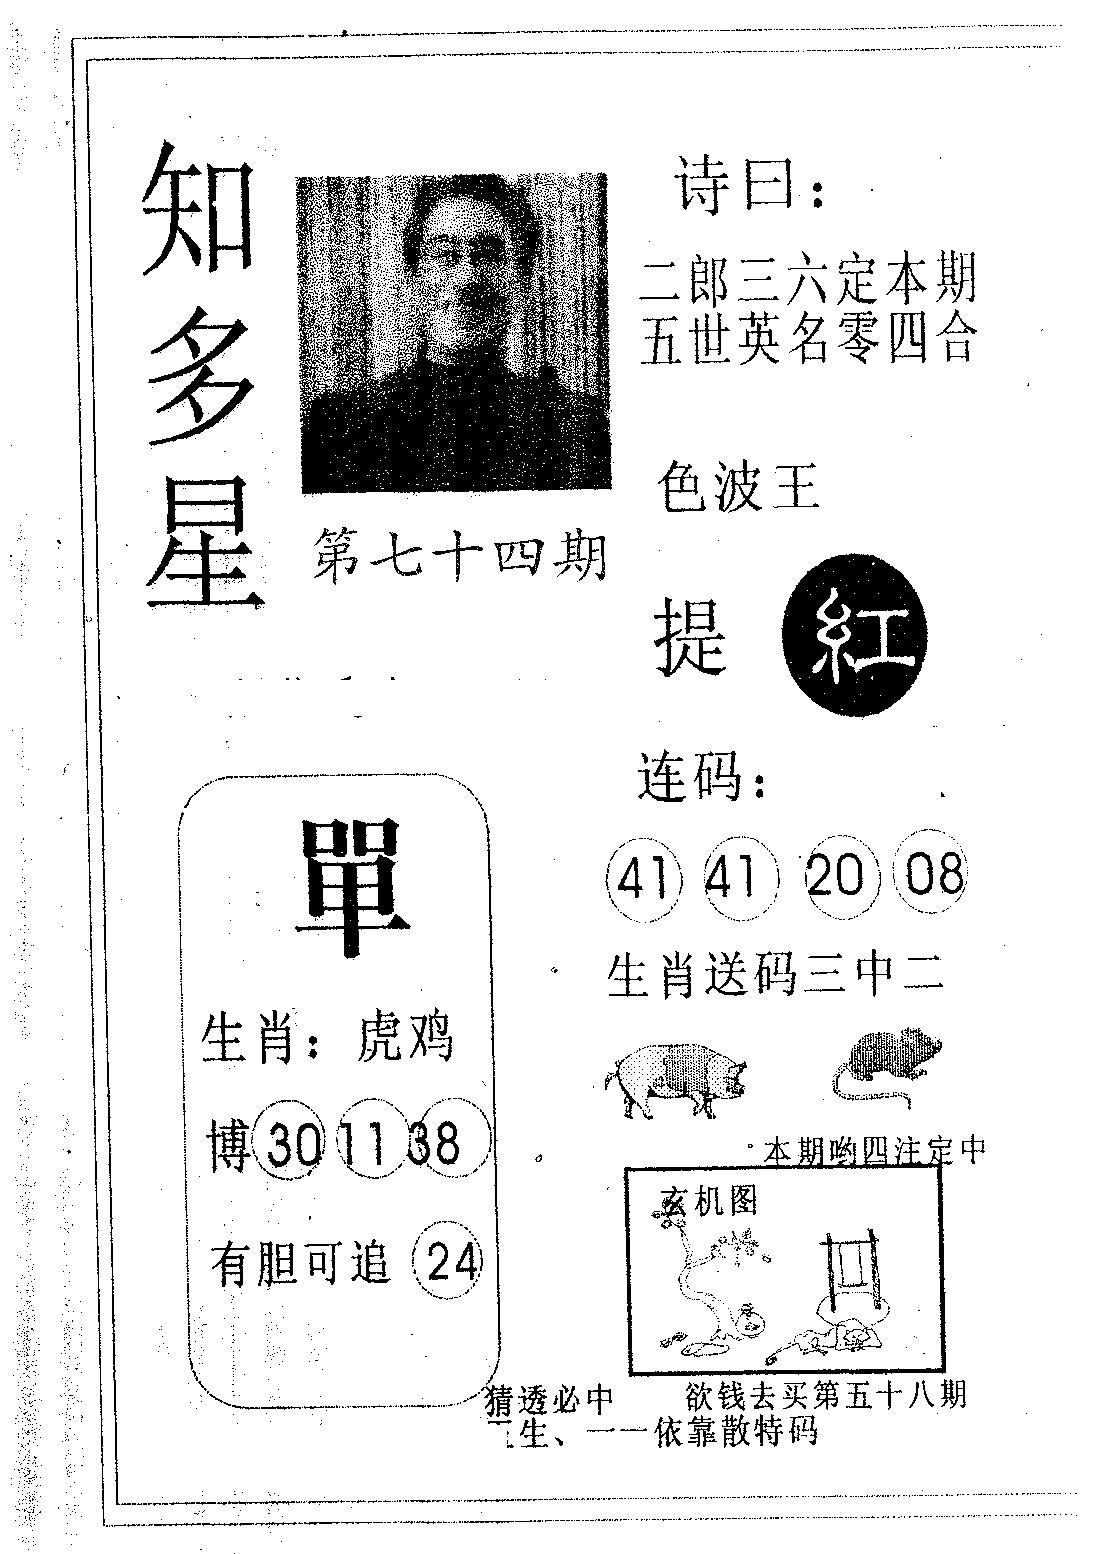 知多星
第七十四期
诗曰：
二郎三六定本期
五世英名零四合
色波王
提 紅
單
生肖：虎鸡
博 30 11 38
有胆可追 24
连码：
41 41 20 08
生肖送码三中二
本期哟四注定中
玄机图
猜透必中 欲钱去买第五十八期
生、一一依靠散特码